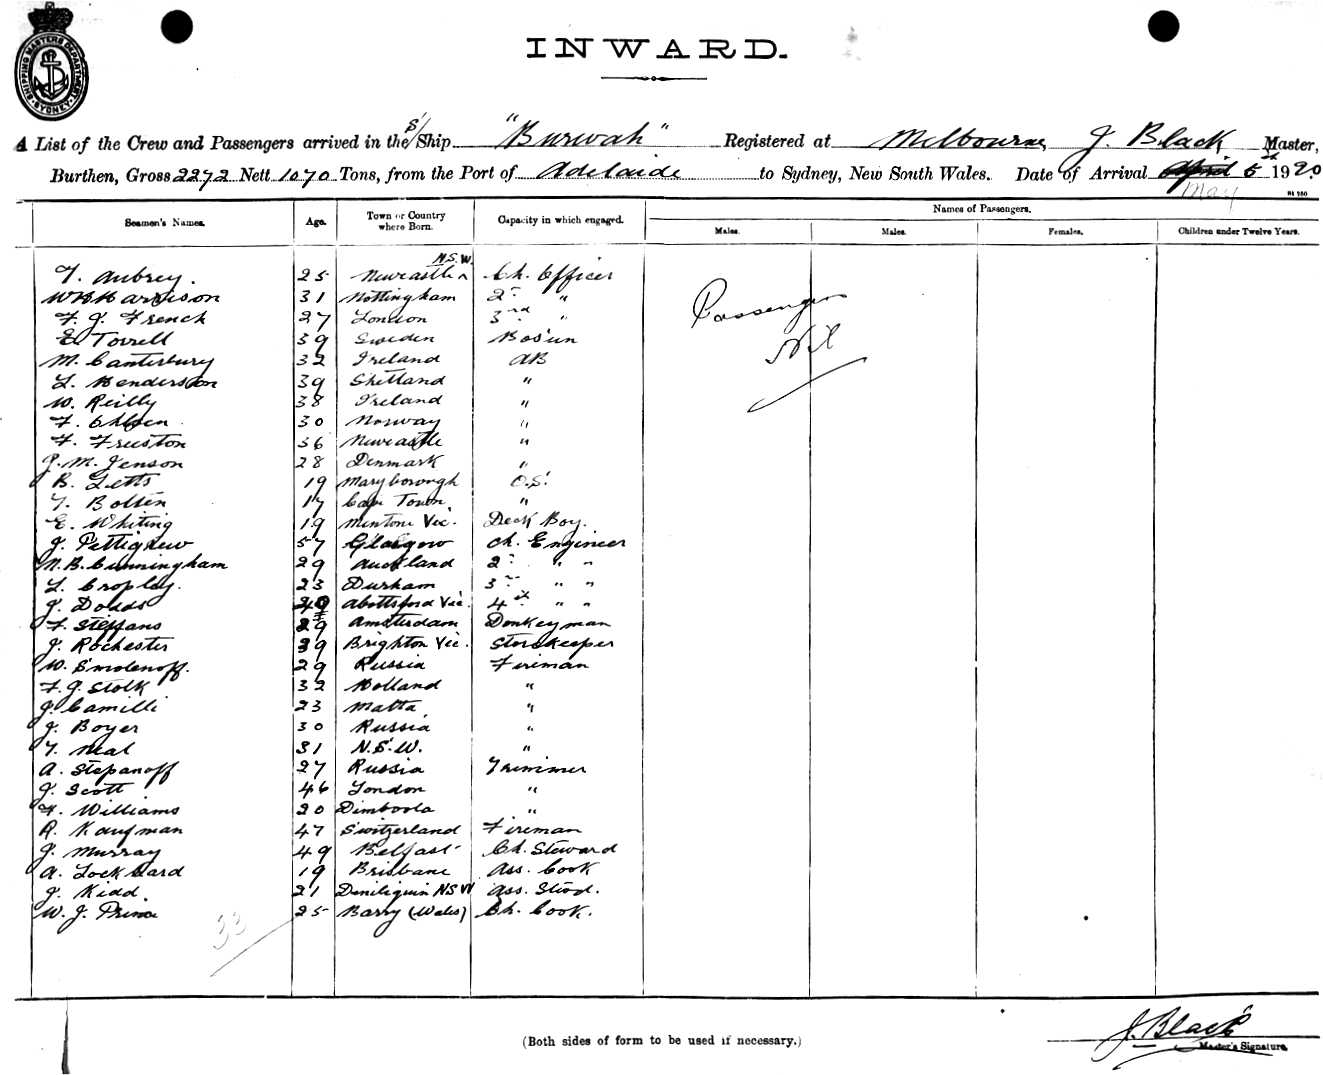 SHIPPING MASTERS DEPARTMENT SYDNEY
INWARD.
A List of the Crew and Passengers arrived in the S/Ship "Burwah" Registered at Melbourne J. Black Master,
Burthen, Gross 2272 Nett 1070 Tons, from the Port of Adelaide to Sydney, New South Wales. Date of Arrival April 5 1920
May
Seamen's Names. Age. Town or Country where Born. Capacity in which engaged. Names of Passengers.
Males. Males. Females. Children under Twelve Years.
T. Aubrey. 25 Newcastle N.S.W. Ch. Officer
W H Harrison 31 Nottingham 2nd "
F. J. French 27 London 3rd "
E. Torrell 39 Sweden Bos'un
M. Canterbury 32 Ireland AB
L. Henderson 39 Shetland "
W. Reilly 38 Ireland "
F. Ohlsen 30 Norway "
F. Freeston 36 Newcastle "
J. M. Jenson 28 Denmark "
B. Letts 19 Maryborough O.S.
T. Bolten 17 Cape Town "
E. Whiting 19 Mentone Vic. Deck Boy.
J. Pettigrew 57 Glasgow Ch. Engineer
N. B. Cunningham 29 Auckland 2nd " "
L. Cropley. 23 Durham 3rd " "
J. Dodds Abottsford Vic. 4th " "
F. Steffans 29 Amsterdam Donkeyman
J. Rochester 39 Brighton Vic. Storekeeper
W. Smolenoff. 29 Russia Fireman
F. J. Stolk 32 Holland "
J. Camilli 23 Malta "
J. Boyer 30 Russia "
T. Neal 31 N.S.W. "
A. Stepanoff 27 Russia Trimmer
J. Scott 46 London "
F. Williams 20 Dimboola "
R. Kaufman 47 Switzerland Fireman
J. Murray 49 Belfast Ch. Steward
A. Lockward 19 Brisbane Ass. Cook
J. Kidd. 21 Deniliquin NSW Ass. Stwd.
W. J. Prime 25 Barry (Wales) Ch. Cook.
33
Passengers
Nil
J. Black
Master's Signature.
(Both sides of form to be used if necessary.)